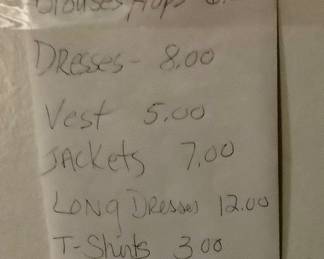 Blouses/Tops
Dresses - 8.00
Vest 5.00
Jackets 7.00
Long Dresses 12.00
T-Shirts 3.00